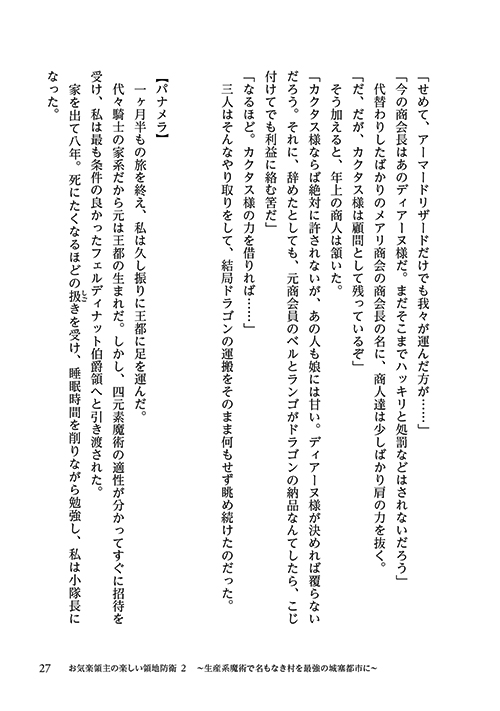 「せめて、アーマードリザードだけでも我々が運んだ方が……」
「今の商会長はあのディアーヌ様だ。まだそこまでハッキリと処罰などはされないだろう」
代替わりしたばかりのメアリ商会の商会長の名に、商人達は少しばかり肩の力を抜く。
「だ、だが、カクタス様は顧問として残っているぞ」
そう加えると、年上の商人は頷いた。
「カクタス様ならば絶対に許されないが、あの人も娘には甘い。ディアーヌ様が決めれば覆らない
だろう。それに、辞めたとしても、元商会員のベルとランゴがドラゴンの納品なんてしたら、こじ
付けてでも利益に絡む筈だ」
「なるほど。カクタス様の力を借りれば……」
三人はそんなやり取りをして、結局ドラゴンの運搬をそのまま何もせず眺め続けたのだった。
【パナメラ】
一ヶ月半もの旅を終え、私は久し振りに王都に足を運んだ。
代々騎士の家系だから元は王都の生まれだ。しかし、四元素魔術の適性が分かってすぐに招待を
受け、私は最も条件の良かったフェルディナット伯爵領へと引き渡された。
家を出て八年。死にたくなるほどの扱きを受け、睡眠時間を削りながら勉強し、私は小隊長に
しご
なった。
27 お気楽領主の楽しい領地防衛 2 ～生産系魔術で名もなき村を最強の城塞都市に～